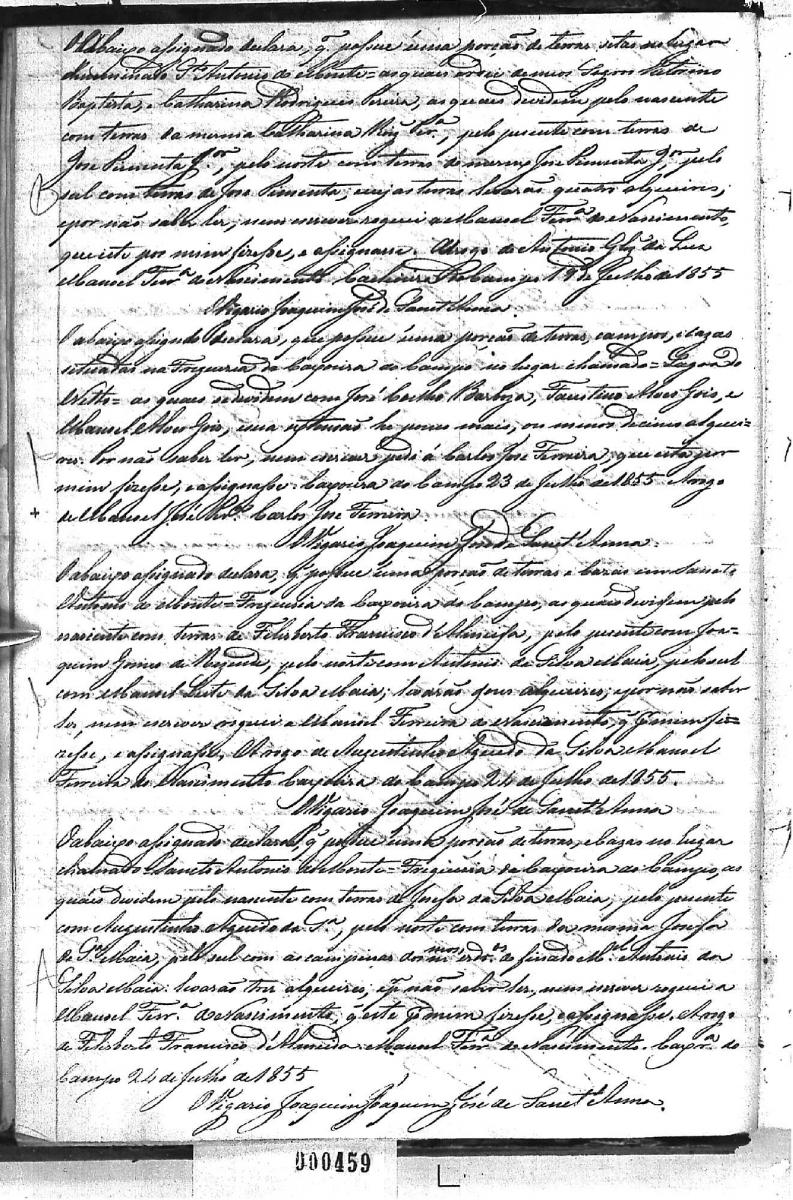 O abaixo assignado declara, q̃ possue uma porção de terras sitas no lugar
denominado Sto Antonio do Monte = as quaes órdei de meos Sogros
Baptista, e Catharina Rodrigues Pereira, as quaes devidem pelo nascente
com terras da mesma Catharina Roiz Perª, pelo puente com terras de
Jose Pimenta Jor, pelo norte com terras do mesmo Jose Pimenta Jor pelo
sul com terras de Jose Pimenta, cujas terras levarão quatro alqueires;
e por não saber ler, nem escrever roguei a Manoel Ferrª do Nascimento,
que este por mim fizesse, e assignasse. Arogo de Antonio Glz da Luz
Manoel Ferrª do Nascimento. Caxoeira do Campo 19 de Julho de 1855
O Vigario Joaquim José de Sanct'Anna.
O abaixo assignado declara, que possue uma porção de terras, campos, e cazas
situadas na Freguezia da Caxoeira do Campo no lugar chamado = Lagoa do
Netto = as quaes se devidem com José Coelho Barboza, Faustino Alves Gois, e
Manoel Alves Gois, cuja extensão he pouco mais, ou menos de cinco alquei-
res. Por não saber ler, nem escrever pedi á Carlos Jose Ferreira, que este por
mim fizesse, e assignasse. Caxoeira do Campo 23 de Julho de 1855 Arogo
de Manoel José Carlos Jose Ferreira.
O Vigario Joaquim José de Sanct'Anna.
O abaixo assignado declara, q̃ possue uma porção de terras e cazas em Sancto
Antonio do Monte = Freguesia da Caxoeira do Campo, as quáes devidem pelo
nascente com terras de Felisberto Francisco d'Almeida, pelo puente com Joa-
quim Gomes de Rezende, pelo norte com Antonio da Silva Maia, pelo sul
com Manoel Leite da Silva Maia; levárão alqueires; e por não saber
ler, nem escrever roguei a Manoel Ferreira do Nascimento, q̃ p̃ mim fi-
zesse, e assignasse. Arogo de Augustinho Azevedo da Silva Manoel
Ferreira do Nascimento Caxoeira do Campo 24 de Julho de 1855.
O Vigario Joaquim José de Sanct'Anna
O abaixo assignado declara, q̃ possue uma porção de terras, e cazas no lugar
chamado Sancto Antonio do Monte = Freguezia da Caxoeira do Campo, as
quáes devidem pelo nascente com terras de Josefa da Silva Maia, pelo puente
com Augustinho Azevedo da Sª, pelo norte com terras da mesma Josefa
da Sª Maia, pelo sul com as campinas dos mos erdos do finado Mel Antonio da
Silva Maia: levarão tres alqueires, e p̃ não saber ler, nem escrever roguei a
Manoel Ferrª do Nascimento, q̃ este p̃ mim fizesse, e assignasse. Arogo
de Felisberto Francisco d'Almeida. Manoel Ferrª do Nascimento. Caxrª do
Campo 24 de Julho de 1855
O Vigario Joaquim Joaquim José de Sanct'Anna.
000459